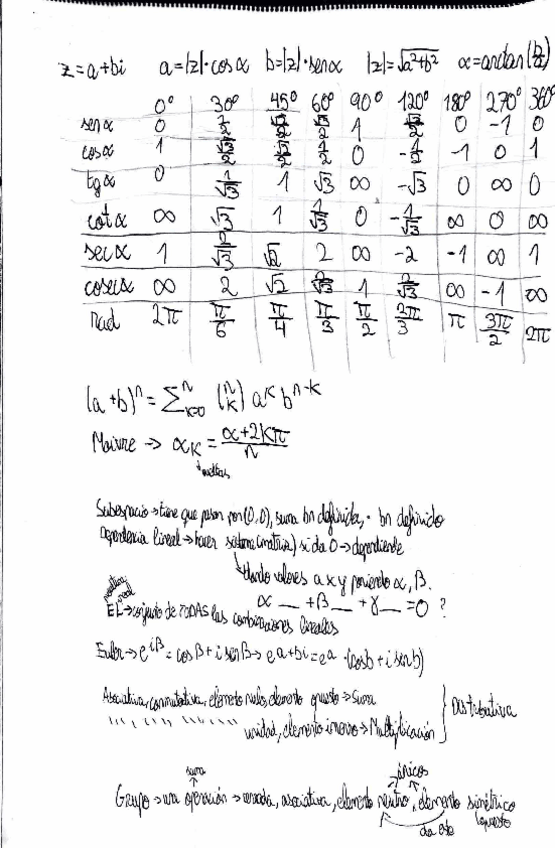 z=a+bi a=|z|·cosα b=|z|·senα |z|=√a²+b² α=arctan(b/a)
0º 30º 45º 60º 90º 120º 180º 270º 360º
senα 0 1/2 √2/2 √3/2 1 √3/2 0 -1 0
cosα 1 √3/2 √2/2 1/2 0 -1/2 -1 0 1
tgα 0 1/√3 1 √3 ∞ -√3 0 ∞ 0
cotα ∞ √3 1 1/√3 0 -1/√3 ∞ 0 ∞
secα 1 2/√3 √2 2 ∞ -2 -1 ∞ 1
cosecα ∞ 2 √2 2/√3 1 2/√3 ∞ -1 ∞
rad 2π π/6 π/4 π/3 π/2 2π/3 π 3π/2 2π
(a+b)ⁿ = Σⁿ k=0 (n k) aᵏ bⁿ⁻ᵏ
Moivre → αK = α+2Kπ/n
↳vueltas
Subespacio → tiene que pasar por (0,0), suma bn definida, · bn definido
Dependencia lineal → hacer sistema (matriz) si da 0 → dependiente
↳dando valores a x y poniendo α, β.
α __ + β __ + γ __ = 0 ?
EL → conjunto de TODAS las combinaciones lineales
Euler → e^iβ = cosβ + i senβ → e^a+bi = e^a · (cosb + i senb)
Asociativa, conmutativa, elemento nulo, elemento opuesto → Suma
'''' '''' '''' unidad, elemento inverso → Multiplicación } Distributiva
suma únicos
Grupo → una operación → cerrada, asociativa, elemento neutro, elemento simétrico
da este (opuesto